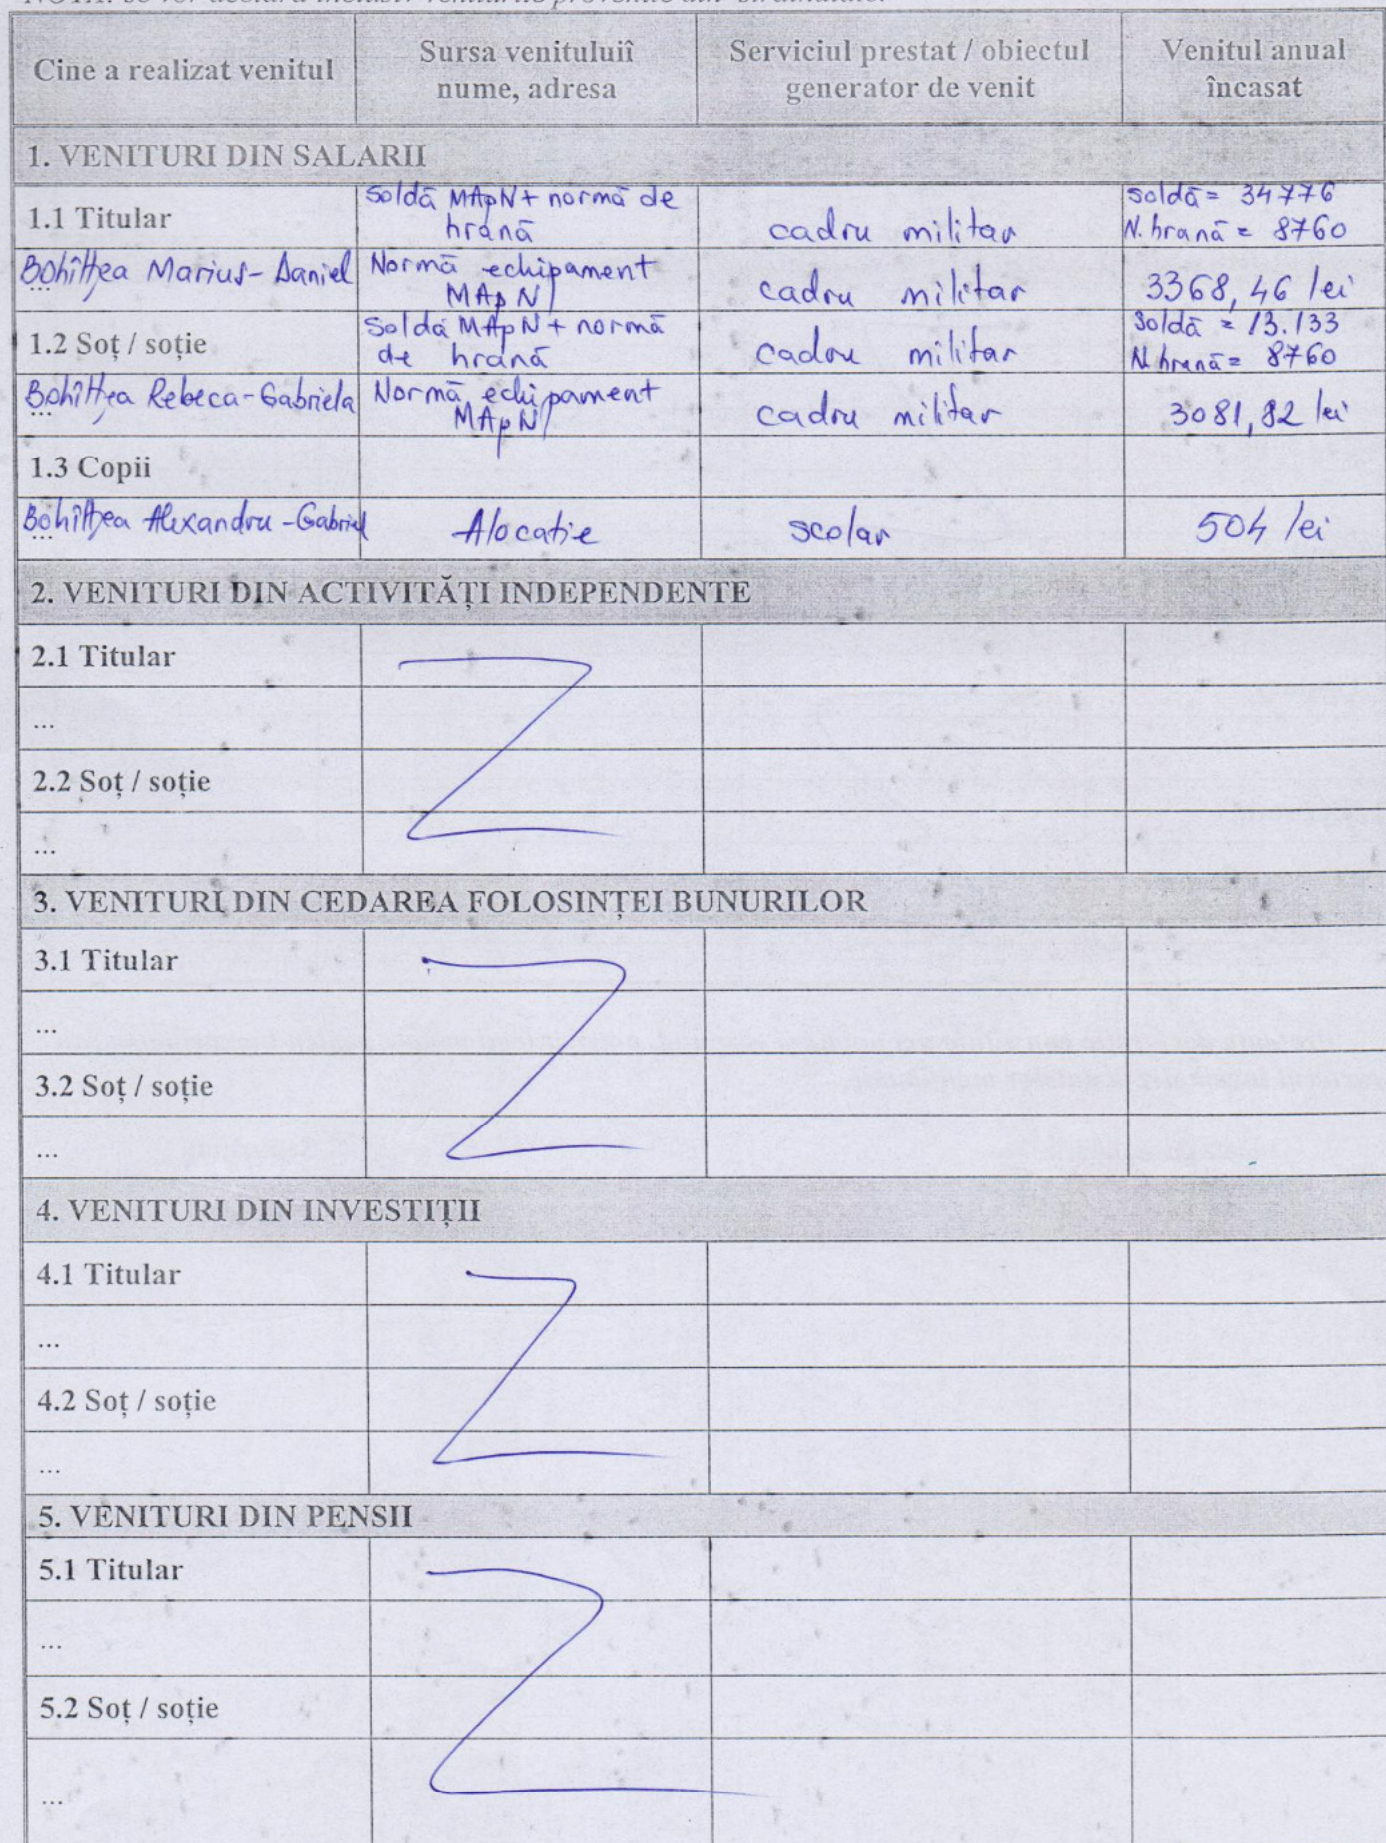 NOTĂ: se vor declara inclusiv veniturile provenite din străinătate.
Cine a realizat venitul
Sursa venituluiî
nume, adresa
Serviciul prestat / obiectul
generator de venit
Venitul anual
încasat
1. VENITURI DIN SALARII
1.1 Titular
Soldă MApN + normă de
hrană
cadru militar
Soldă = 34776
N. hrană = 8760
Bohîlțea Marius-Daniel
...
Normă echipament
MApN
cadru militar
3368,46 lei
1.2 Soț / soție
Soldă MApN + normă
de hrană
cadru militar
Soldă = 13.133
N. hrană = 8760
Bohîlțea Rebeca-Gabriela
...
Normă echipament
MApN
cadru militar
3081,82 lei
1.3 Copii
Bohîlțea Alexandru-Gabriel
...
Alocatie
scolar
504 lei
2. VENITURI DIN ACTIVITĂȚI INDEPENDENTE
2.1 Titular
...
2.2 Soț / soție
...
3. VENITURI DIN CEDAREA FOLOSINȚEI BUNURILOR
3.1 Titular
...
3.2 Soț / soție
...
4. VENITURI DIN INVESTIȚII
4.1 Titular
...
4.2 Soț / soție
...
5. VENITURI DIN PENSII
5.1 Titular
...
5.2 Soț / soție
...